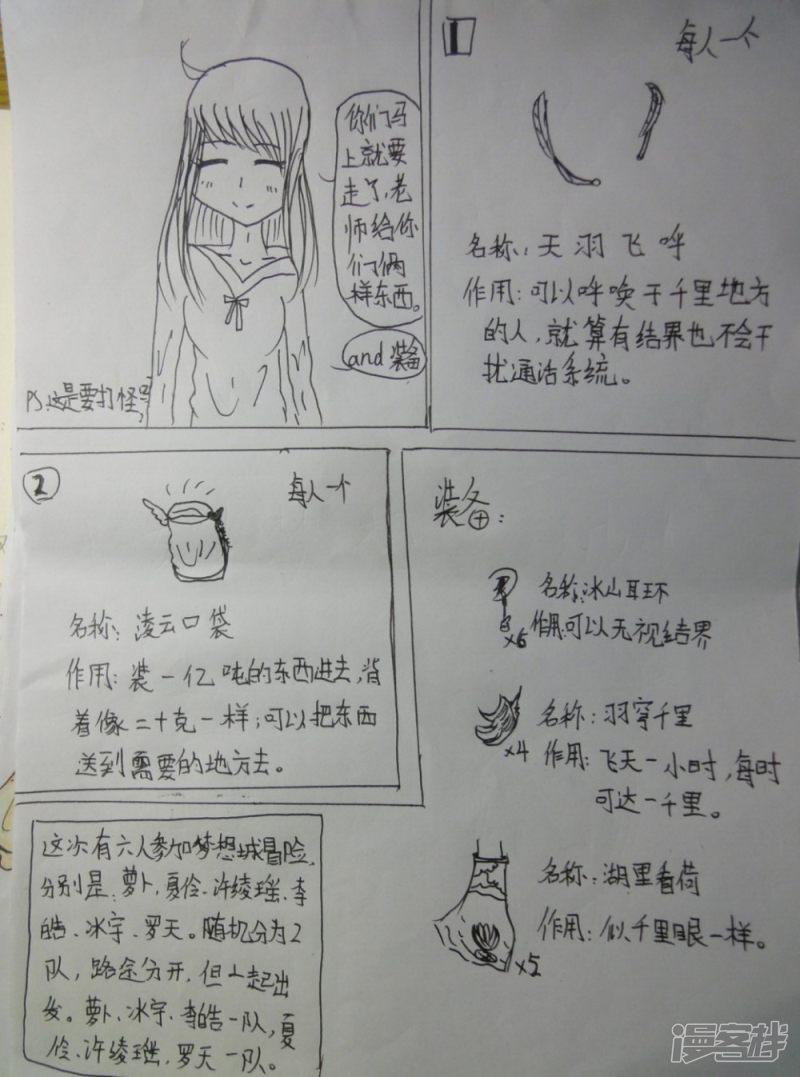 你们马
上就要
走了,老
师给你
们俩
样东西。
and 装备
PS:这是要打怪吗
1
每人一个
名称:天羽飞呼
作用:可以呼唤干千里地方
的人,就算有结界也不会干
扰通话系统。
2
每人一个
名称:凌云口袋
作用:装一亿吨的东西进去,背
着像二十克一样;可以把东西
送到需要的地方去。
装备:
名称:冰山耳环
作用:可以无视结界
x6
名称:羽穿千里
x4
作用:飞天一小时,每时
可达一千里。
名称:湖里看荷
作用:似千里眼一样。
x2
这次有六人参加梦想城冒险,
分别是:萝卜、夏伶、许绫瑶、李
皓、冰宇、罗天。随机分为2
队,路途分开,但一起出
发。萝卜、冰宇、李皓一队,夏
伶、许绫瑶、罗天一队。
漫客栈